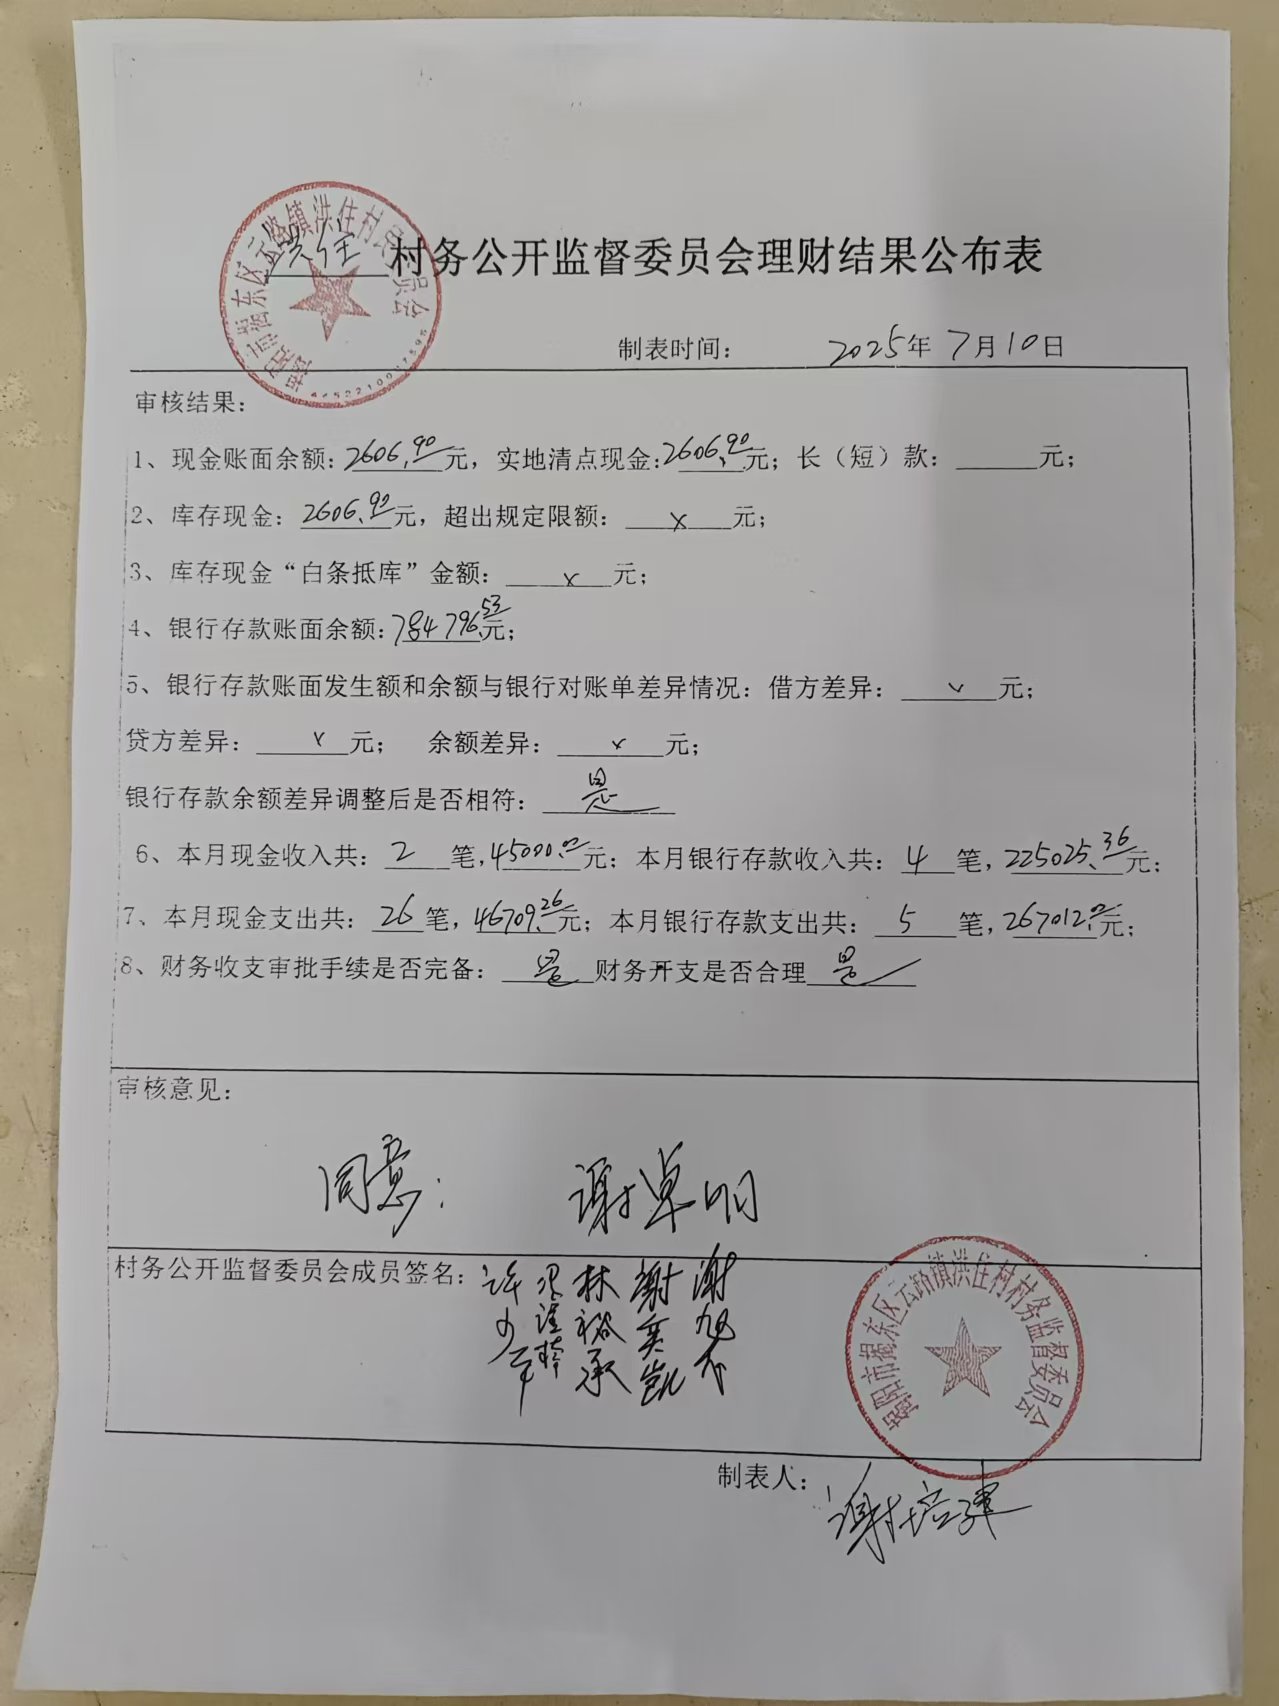 揭阳市揭东区云路镇洪住村民委员会
洪住 村务公开监督委员会理财结果公布表
制表时间： 2025年7月10日
审核结果：
1、现金账面余额：2606.90元，实地清点现金：2606.90元；长（短）款：______元；
2、库存现金：2606.90元，超出规定限额：x元；
3、库存现金“白条抵库”金额：x元；
4、银行存款账面余额：784796.53元；
5、银行存款账面发生额和余额与银行对账单差异情况：借方差异：x元；
贷方差异：x元； 余额差异：x元；
银行存款余额差异调整后是否相符：是
6、本月现金收入共：2笔，45000.00元；本月银行存款收入共：4笔，225025.36元；
7、本月现金支出共：26笔，46709.26元；本月银行存款支出共：5笔，267012.02元；
8、财务收支审批手续是否完备：是 财务开支是否合理 是
审核意见：
同意： 谢卓明
村务公开监督委员会成员签名：
林裕承
谢奕凯
揭阳市揭东区云路镇洪住村村务监督委员会
制表人：谢培津